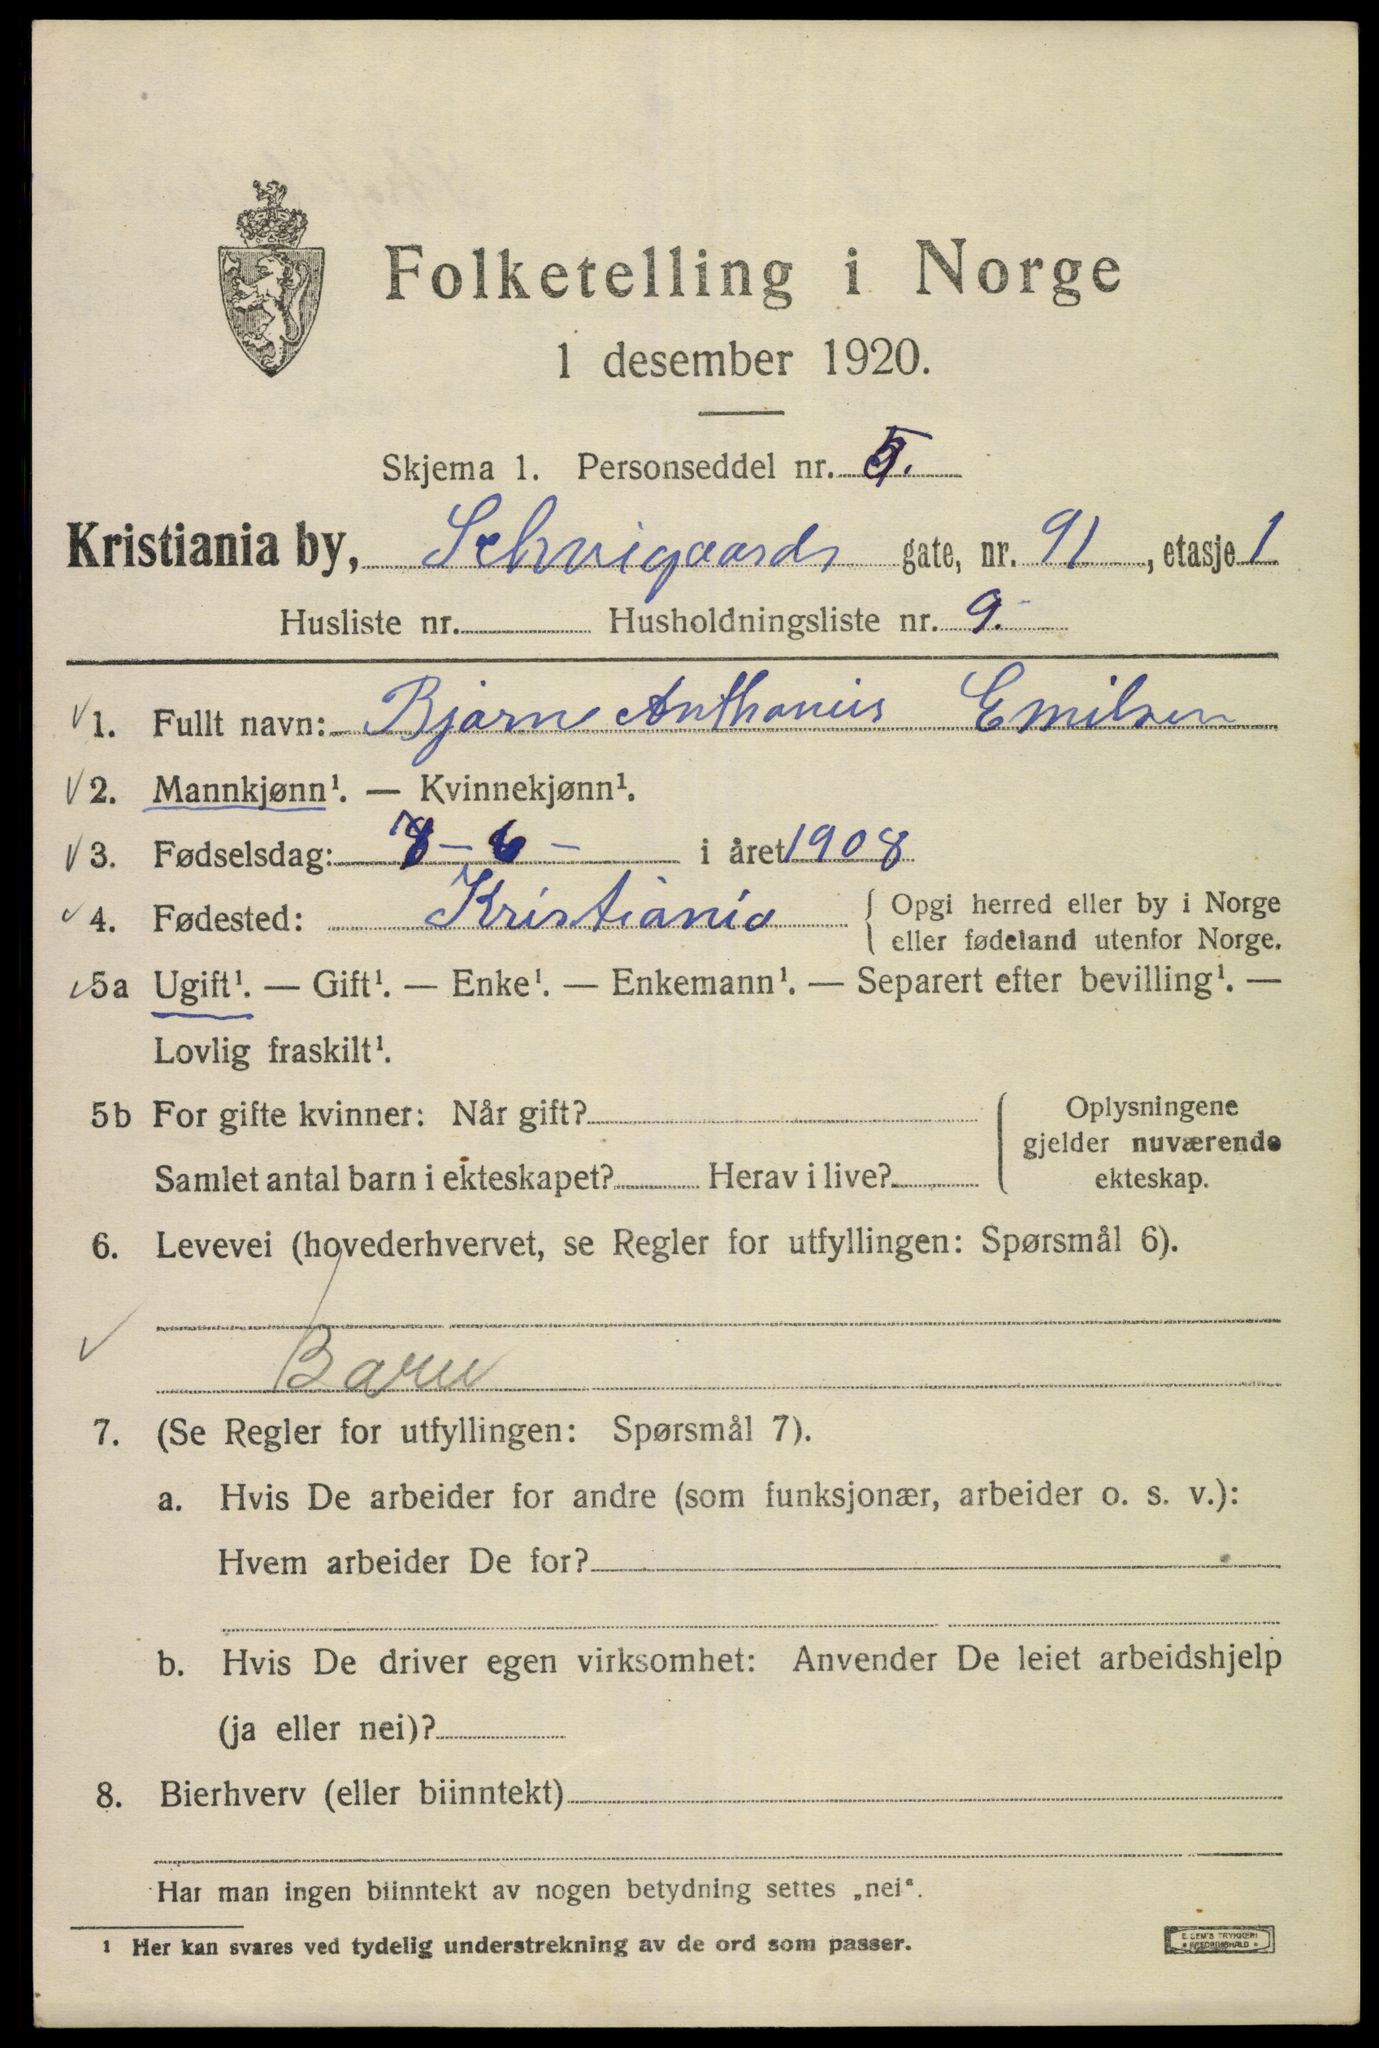 Folketelling i Norge
1 desember 1920.
Skjema 1. Personseddel nr. 5.
Kristiania by, Schvigaards gate, nr. 91, etasje 1
Husliste nr. Husholdningsliste nr. 9.
1. Fullt navn: Bjarne Anthonius Emilsen
2. Mannkjønn¹. — Kvinnekjønn¹.
3. Fødselsdag: 8 - 6 - i året 1908
4. Fødested: Kristiania { Opgi herred eller by i Norge
eller fødeland utenfor Norge.
5a Ugift¹. — Gift¹. — Enke¹. — Enkemann¹. — Separert efter bevilling¹. —
Lovlig fraskilt¹.
5b For gifte kvinner: Når gift? { Oplysningene
gjelder nuværende
Samlet antal barn i ekteskapet? Herav i live? ekteskap.
6. Levevei (hovederhvervet, se Regler for utfyllingen: Spørsmål 6).
Barn
7. (Se Regler for utfyllingen: Spørsmål 7).
a. Hvis De arbeider for andre (som funksjonær, arbeider o. s. v.):
Hvem arbeider De for?
b. Hvis De driver egen virksomhet: Anvender De leiet arbeidshjelp
(ja eller nei)?
8. Bierhverv (eller biinntekt)
Har man ingen biinntekt av nogen betydning settes „nei“.
1 Her kan svares ved tydelig understrekning av de ord som passer.
E. SEM'S TRYKKERI